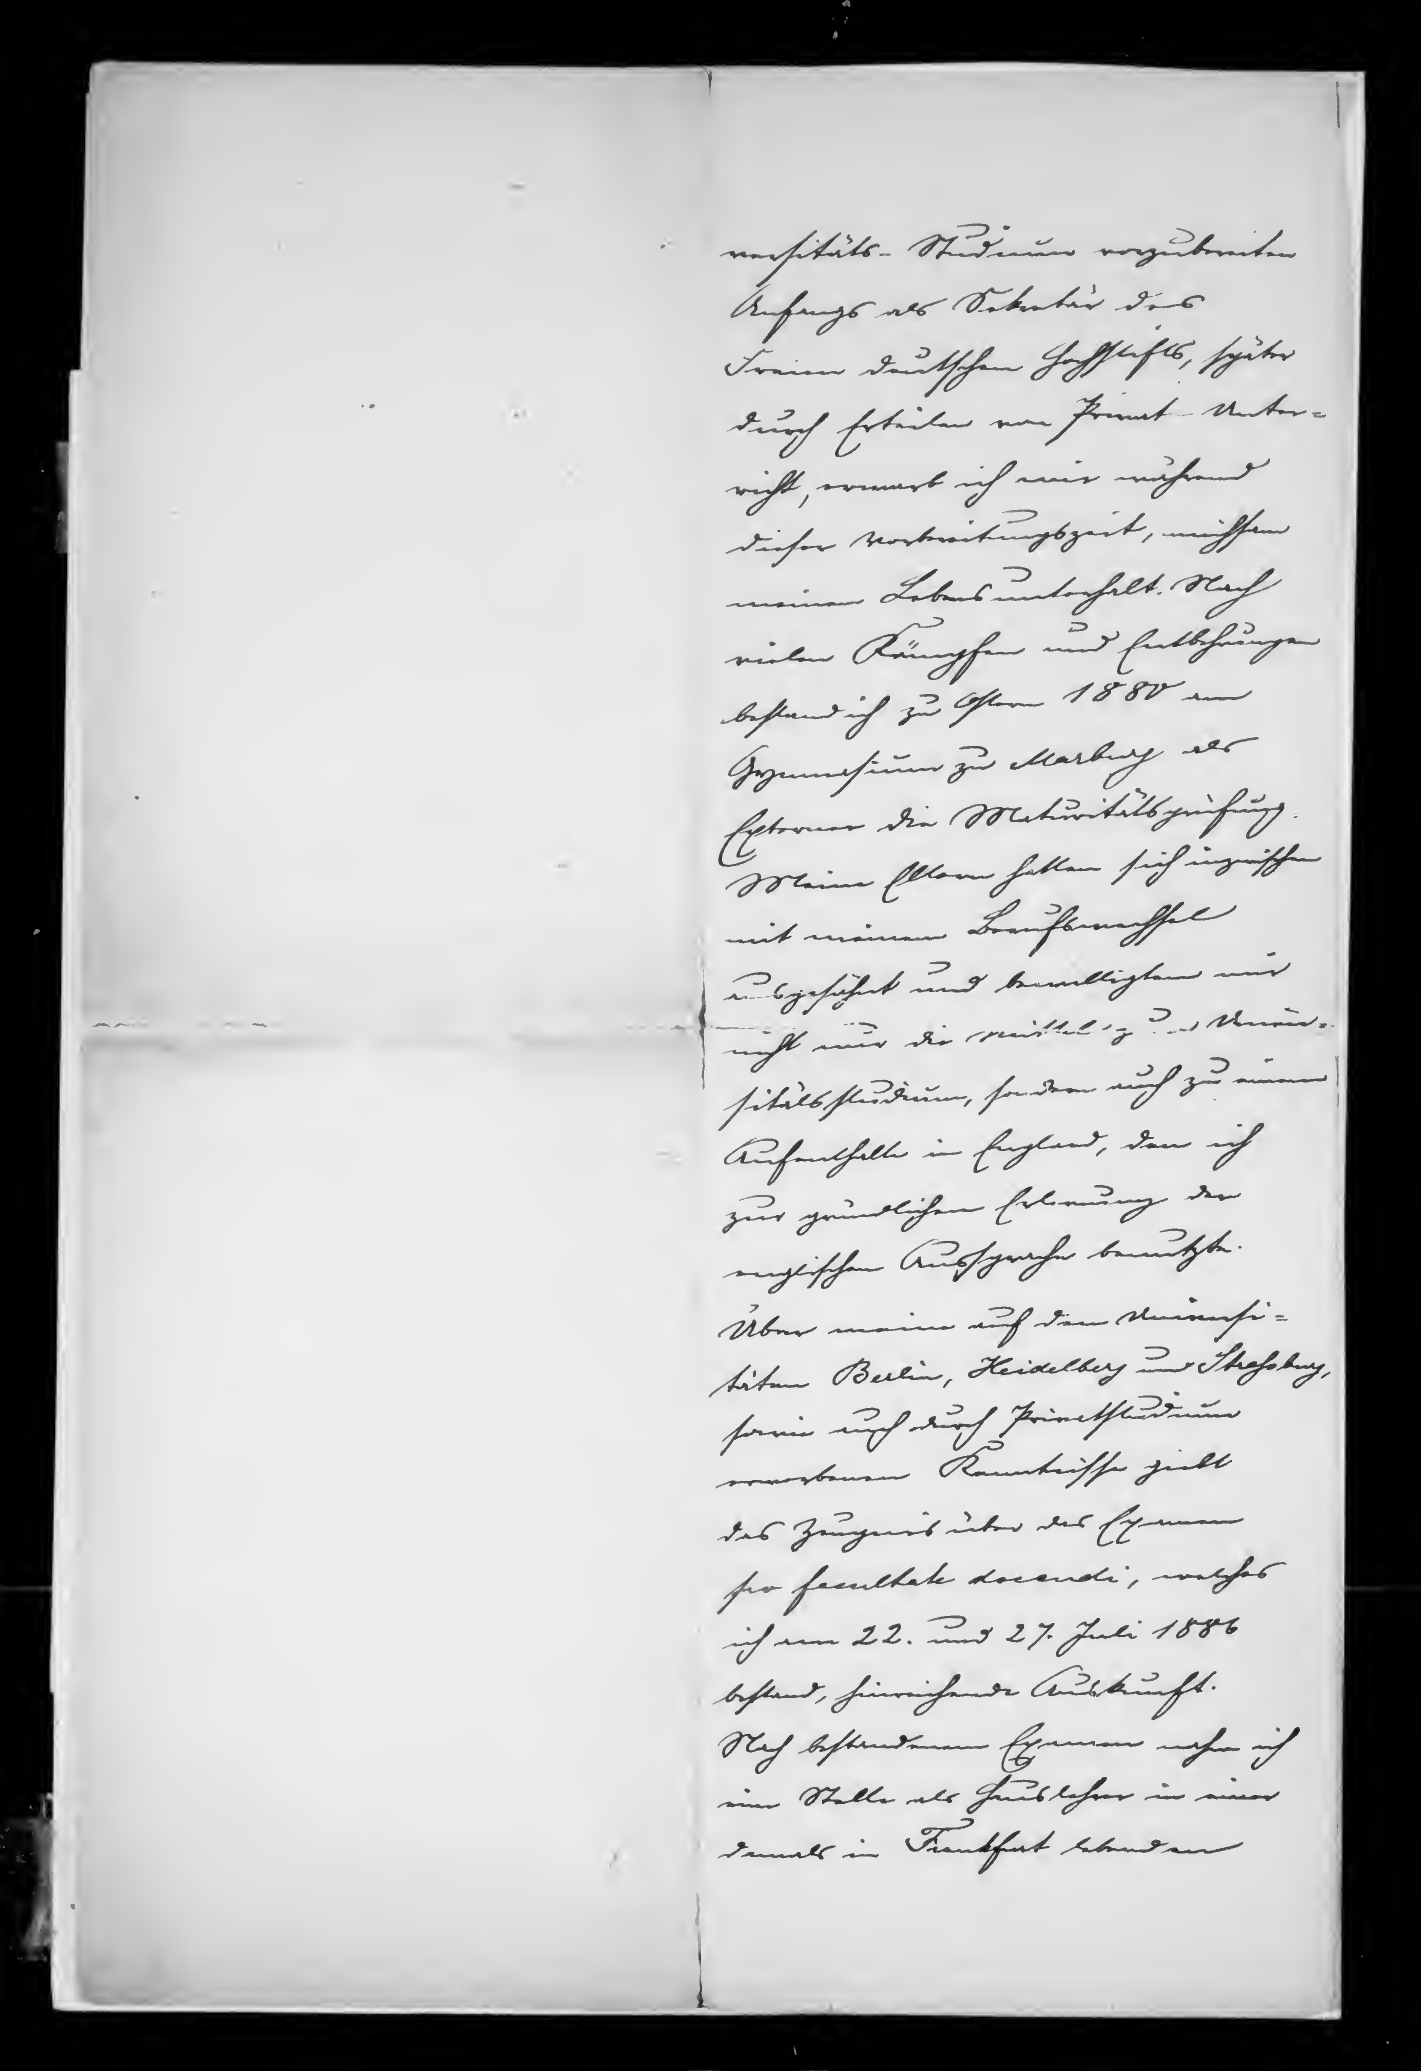 versitäts-Studium vorzubereiten
Anfangs als Sekretär des
Freien deutschen Hochstifts, später
durch Erteilen von Privat-Unter=
richt, erwarb ich mir während
dieser Vorbereitungszeit, mühsam
meinen Lebensunterhalt. Nach
vielen Kämpfen und Entbehrungen
bestand ich zu Ostern 1880 am
Gymnasium zu Marburg als
Externer die Maturitätsprüfung.
Meine Eltern hatten sich inzwischen
mit meinem Berufswechsel
ausgesöhnt und bewilligten mir
nicht nur die Mittel zum Univer=
sitätsstudium, sondern auch zu einem
Aufenthalte in England, den ich
zur gründlichen Erlernung der
englischen Aussprache benutzte.
Über meine auf den Universi=
täten Berlin, Heidelberg und Strassburg,
sowie auch durch Privatstudium
erworbenen Kenntnisse giebt
das Zeugnis über das Examen
pro facultate docendi, welches
ich am 22. und 27. Juli 1886
bestand, hinreichende Auskunft.
Nach bestandenem Examen nahm ich
eine Stelle als Hauslehrer in einer
damals in Frankfurt lebenden